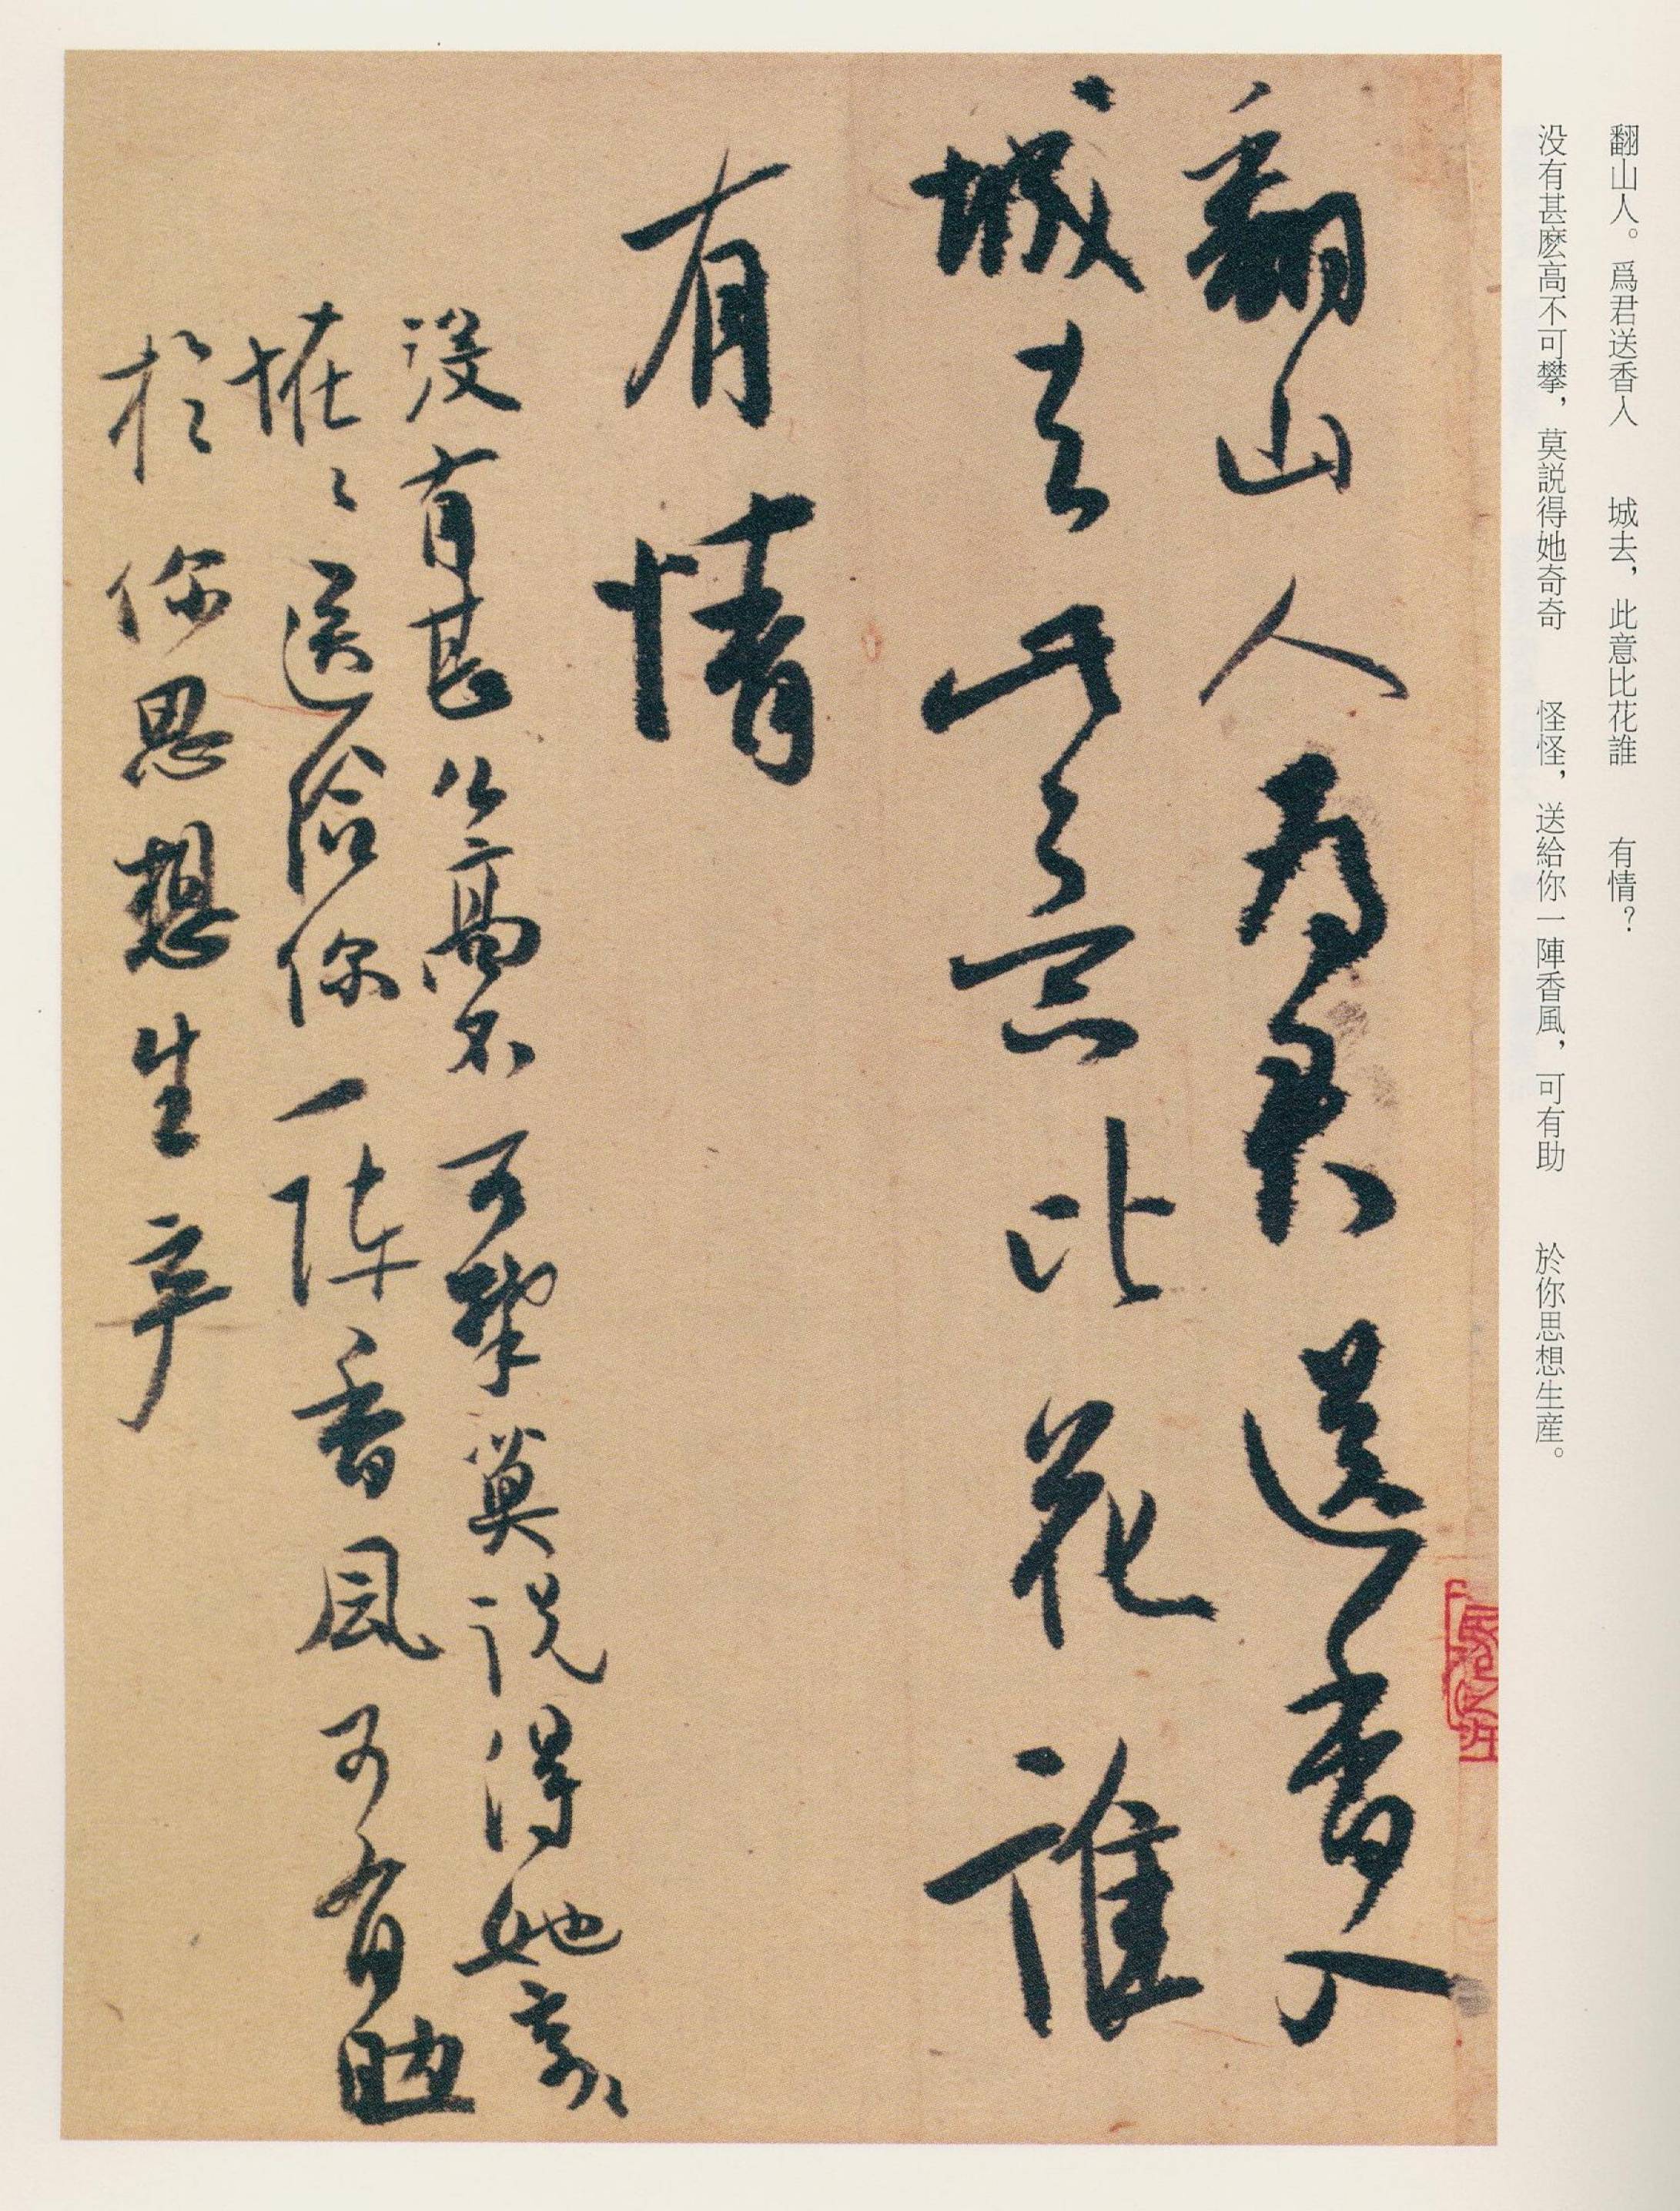 翻山人。爲君送香入　城去，此意比花誰　有情？
没有甚麽高不可攀，莫説得她奇奇　怪怪，送給你一陣香風，可有助　於你思想生産。
翻山人为君送香入
城去此意比花谁
有情
没有甚么高不可攀莫说得她奇〻
怪〻送给你一阵香风可有助
於你思想生产